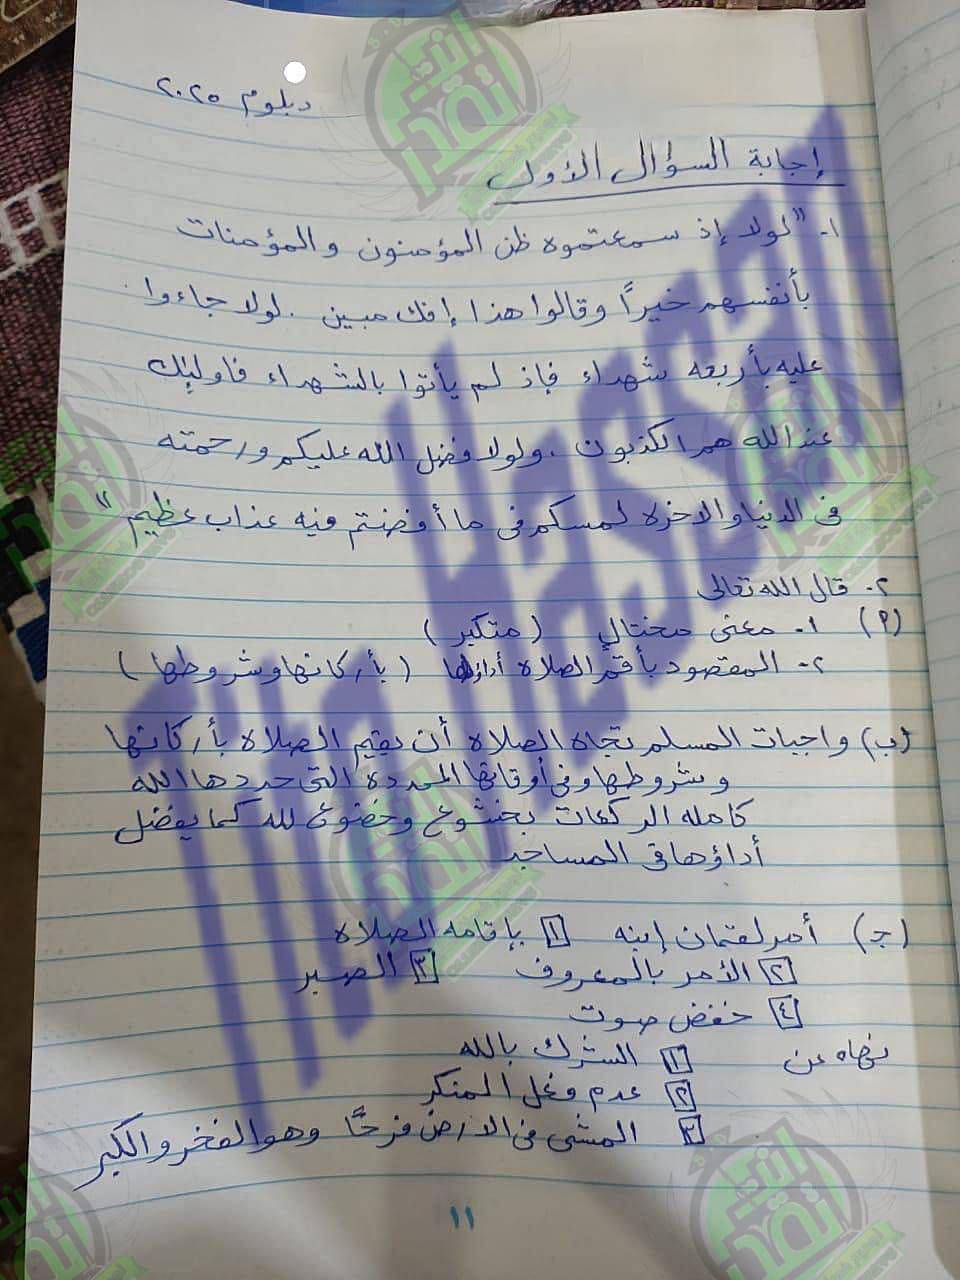 دبلوم ٢٠٢٥
إجابة السؤال الأول
١- "لولا إذ سمعتموه ظن المؤمنون والمؤمنات
بأنفسهم خيرًا وقالوا هذا إفك مبين . لولا جاءوا
عليه بأربعه شهداء فإذ لم يأتوا بالشهداء فاولئك
عند الله هم الكذبون . ولولا فضل الله عليكم ورحمته
فى الدنيا والاخره لمسكم فى ما أفضتم فيه عذاب عظيم"
٢- قال الله تعالى
(أ) ١- معنى مختال (متكبر)
٢- المقصود بأقم الصلاة أداؤها (بأركانها وشروطها)
(ب) واجبات المسلم تجاه الصلاة أن يقيم الصلاة بأركانها
وشروطها وفى أوقاتها المحددة التى حددها الله
كامله الركعات بخشوع وخضوع لله كما يفضل
أداؤها فى المساجد
(جـ) أمر لقمان إبنه ١ بإقامه الصلاه
٢ الأمر بالمعروف ٣ الصبر
٤ خفض صوت
نهاه عن ١ الشرك بالله
٢ عدم وغل المنكر
٣ المشى فى الارض فرحًا وهو الفخر والكبر
١١
Tito Hassan